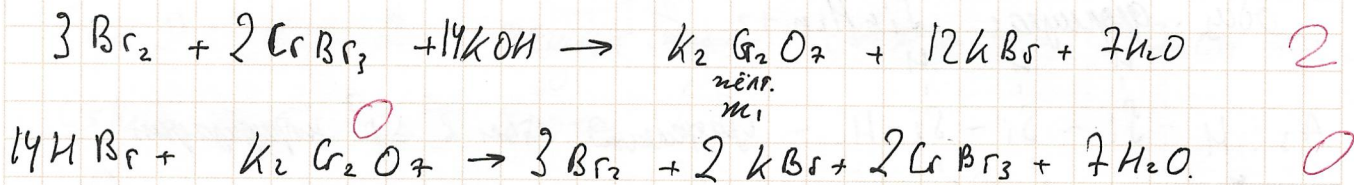 3 Br₂ + 2 CrBr₃ + 14KOH → K₂Cr₂O₇ + 12KBr + 7H₂O 2
жёлт.
m₁
0
14HBr + K₂Cr₂O₇ → 3Br₂ + 2KBr + 2CrBr₃ + 7H₂O. 0